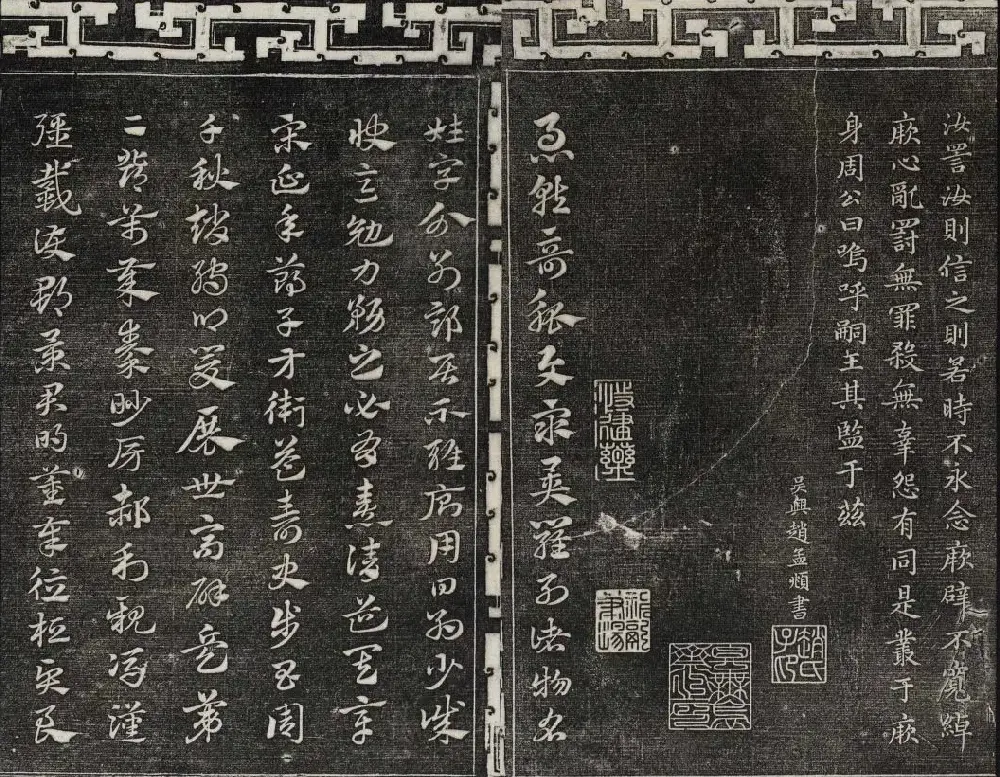 汝詈汝則信之則若時不永念厥辟不寬綽
厥心亂罰無罪殺無辜怨有同是叢于厥
身周公曰嗚呼嗣王其監于茲
吳興趙孟頫書
急就奇觚與眾異羅列諸物名
姓字分別部居不雜廁用日約少誠
快意勉力務之必有憙請道其章
宋延年鄭子方衛益壽史步昌周
千秋趙孺卿爰展世高辟兵第
二鄧萬歲秦眇房郝利親馮漢
彊戴護郡景君明董奉德桓賢良